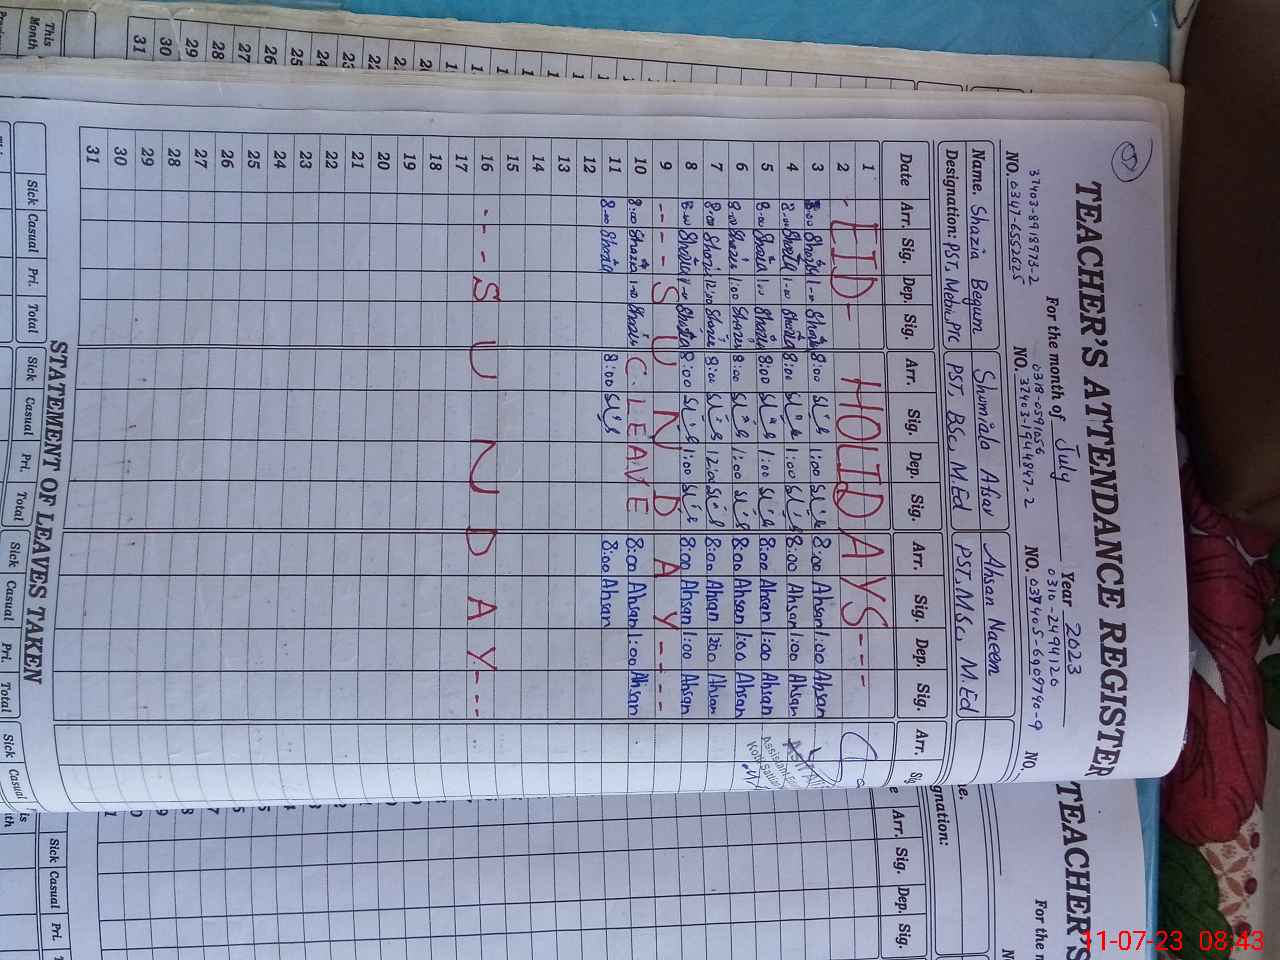 TEACHER'S ATTENDANCE REGISTER
For the month of July Year 2023
37403-8918973-2 0318-0591056 0310-2494120
NO. 0347-6552625 NO. 37403-1944847-2 NO. 037405-6909740-9 NO.
Name. Shazia Begum Shumiala Afsar Ahsan Naeem
Designation: PST, Metric, PTC PST, BSc, M.Ed PST, MSc, M.Ed
Date Arr. Sig. Dep. Sig. Arr. Sig. Dep. Sig. Arr. Sig. Dep. Sig. Arr.
1 - EID - HOLIDAYS---
2
3 8:00 Shazia 1:00 Shazia 8:00 1:00 8:00 Ahsan 1:00 Ahsan
4 8:00 Shazia 1:00 Shazia 8:00 1:00 8:00 Ahsan 1:00 Ahsan
5 8:00 Shazia 1:00 Shazia 8:00 1:00 8:00 Ahsan 1:00 Ahsan
6 8:00 Shazia 1:00 Shazia 8:00 1:00 8:00 Ahsan 1:00 Ahsan
7 8:00 Shazia 12:00 Shazia 8:00 12:00 8:00 Ahsan 12:00 Ahsan
8 8:00 Shazia 1:00 Shazia 8:00 1:00 8:00 Ahsan 1:00 Ahsan
9 ---- SUNDAY----
10 8:00 Shazia 1:00 Shazia C. LEAVE 8:00 Ahsan 1:00 Ahsan
11 8:00 Shazia 8:00 8:00 Ahsan
12
13
14
15
16 ---SUNDAY---
17
18
19
20
21
22
23
24
25
26
27
28
29
30
31
STATEMENT OF LEAVES TAKEN
Sick Casual Pri. Total Sick Casual Pri. Total Sick Casual Pri. Total Sick Casual
This Month
26
27
28
29
30
31
TEACHER'S
For the
gnation:
Arr. Sig. Dep. Sig.
Sick Casual Pri.
11-07-23 08:43